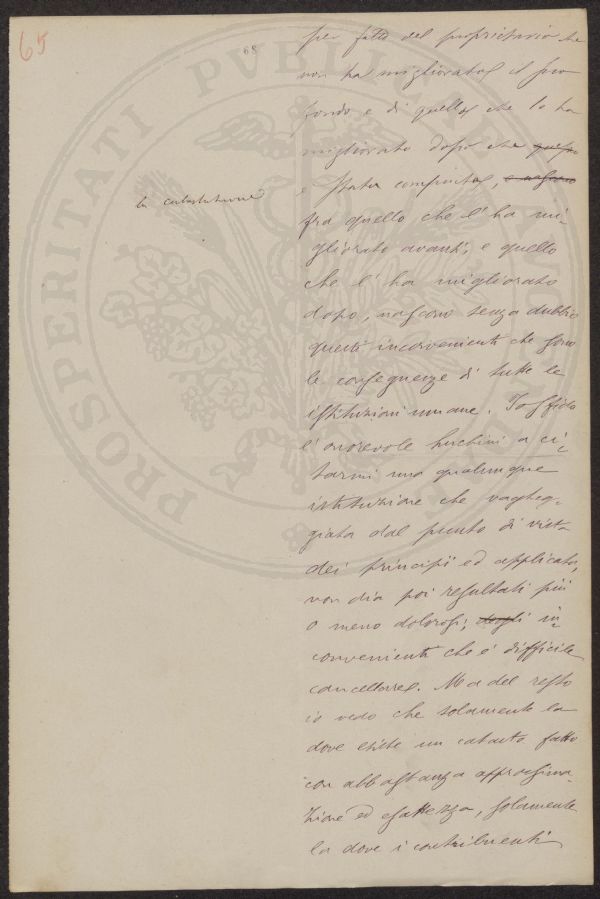 65
68
per fatto del proprietario che
non ha migliorato il suo
fondo e di quello che lo ha
migliorato dopo che questo
la catastazione
è stata compiuta,
fra quello che l'ha mi-
gliorato avanti, e quello
che l'ha migliorato
dopo, nascono senza dubbio
questi inconvenienti che sono
le conseguenze di tutte le
istituzioni umane. Io sfido
l'onorevole Luchini a ci-
tarmi una qualunque
istituzione che vagheg-
giata dal punto di vista
dei principii ed applicata,
non dia poi resultati più
o meno dolorosi; degli in-
convenienti che è difficile
cancellare. Ma del resto
io vedo che solamente la
dove esiste un catasto fatto
con abbastanza approssima-
zione ed esattezza, solamente
la dove i contribuenti
PROSPERITATI PVBLICAE AVGENDAE